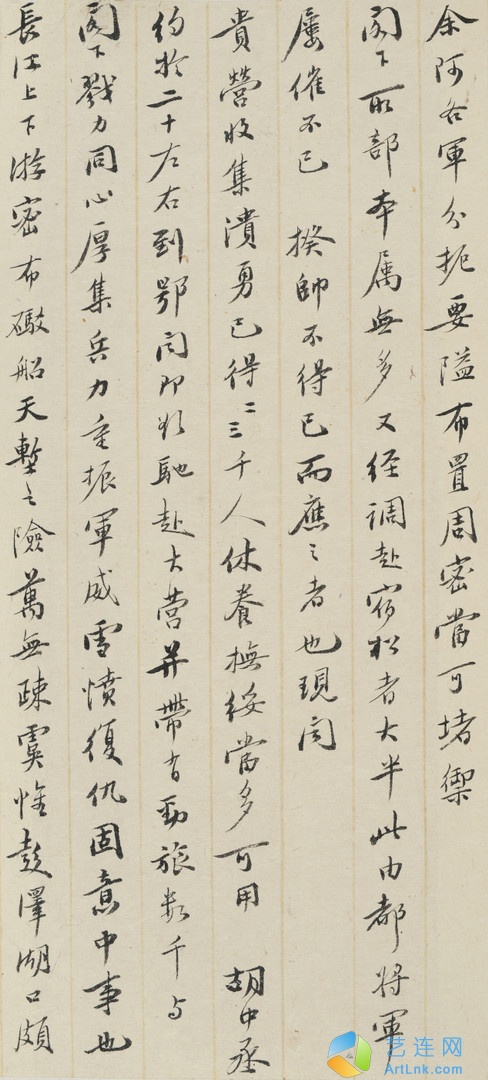 余阿各軍分扼要隘布置周密當可堵禦
閣下所部本属無多又经調赴宿松者大半此由都将軍
屡催不已 揆帥不得已而應之者也現闻
貴營收集潰勇已得二三千人休養撫綏當多可用 胡中丞
约於二十左右到鄂闻即欲馳赴大营并帶有勁旅数千与
閣下戮力同心厚集兵力重振軍威雪憤復仇固意中事也
長江上下游密布礮船天塹之險萬無疎虞惟彭澤湖口頗
艺连网
ArtLnk.com